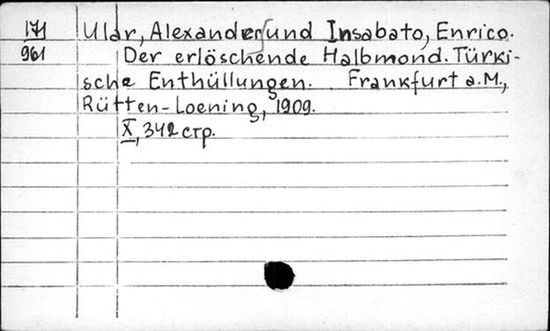 171 Ular, Alexander und Insabato, Enrico.
961 Der erlöschende Halbmond. Türki-
sche Enthüllungen. Frankfurt a.M.,
Rütten-Loening, 1909.
X, 342 стр.